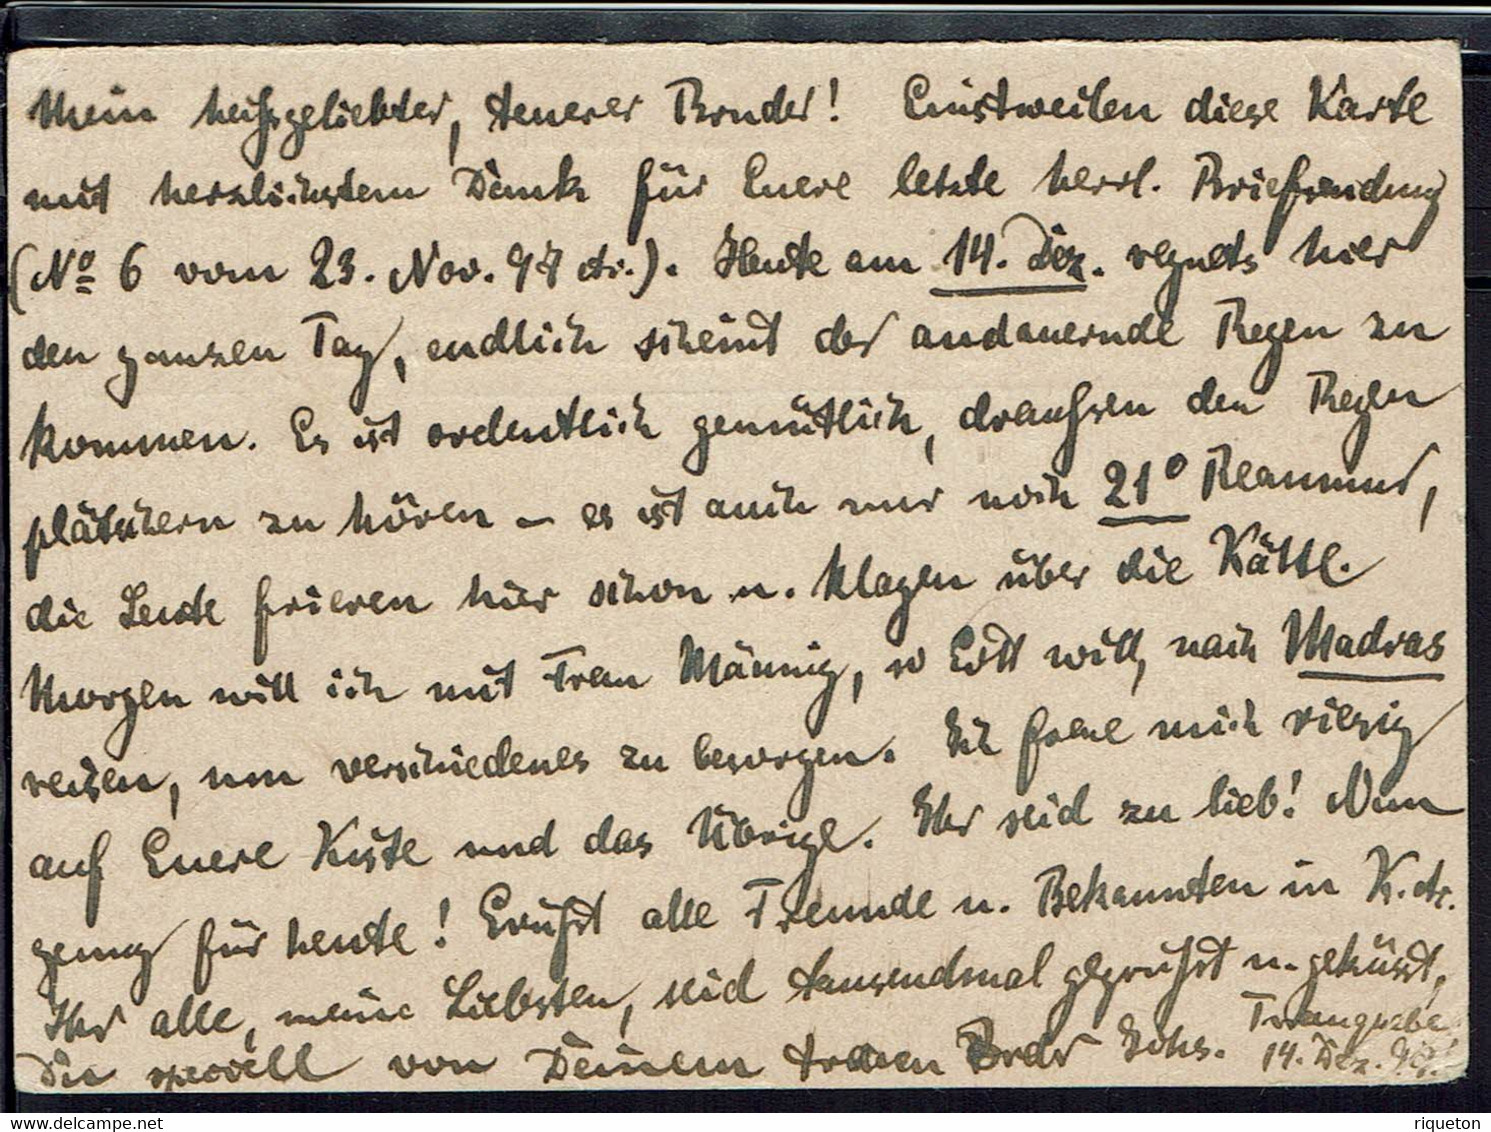 Mein heißgeliebter, teurer Bruder! Einstweilen diese Karte
mit herzlichstem Dank für Euere letzte herrl. Briefsendung
(No 6 vom 23. Nov. 97 etc.). Heute am 14. Dez. regnets hier
den ganzen Tag, endlich scheint der andauernde Regen zu
kommen. Es ist ordentlich gemütlich, draußen den Regen
plätschern zu hören - es ist auch nur noch 21° Reaumur,
die Leute frieren hier schon u. klagen über die Kälte.
Morgen will ich mit Frau Männig, so Gott will, nach Madras
reisen, um verschiedenes zu besorgen. Ich freue mich riesig
auf Euere Kiste und das Übrige. Ihr seid zu lieb! Nun
genug für heute! Grüßt alle Freunde u. Bekannten in K. etc.
Ihr alle, meine Liebsten, seid tausendmal gegrüßt u. geküsst,
Du speciell von Deinem treuen Bruder Johs.
14. Dez.
riqueton